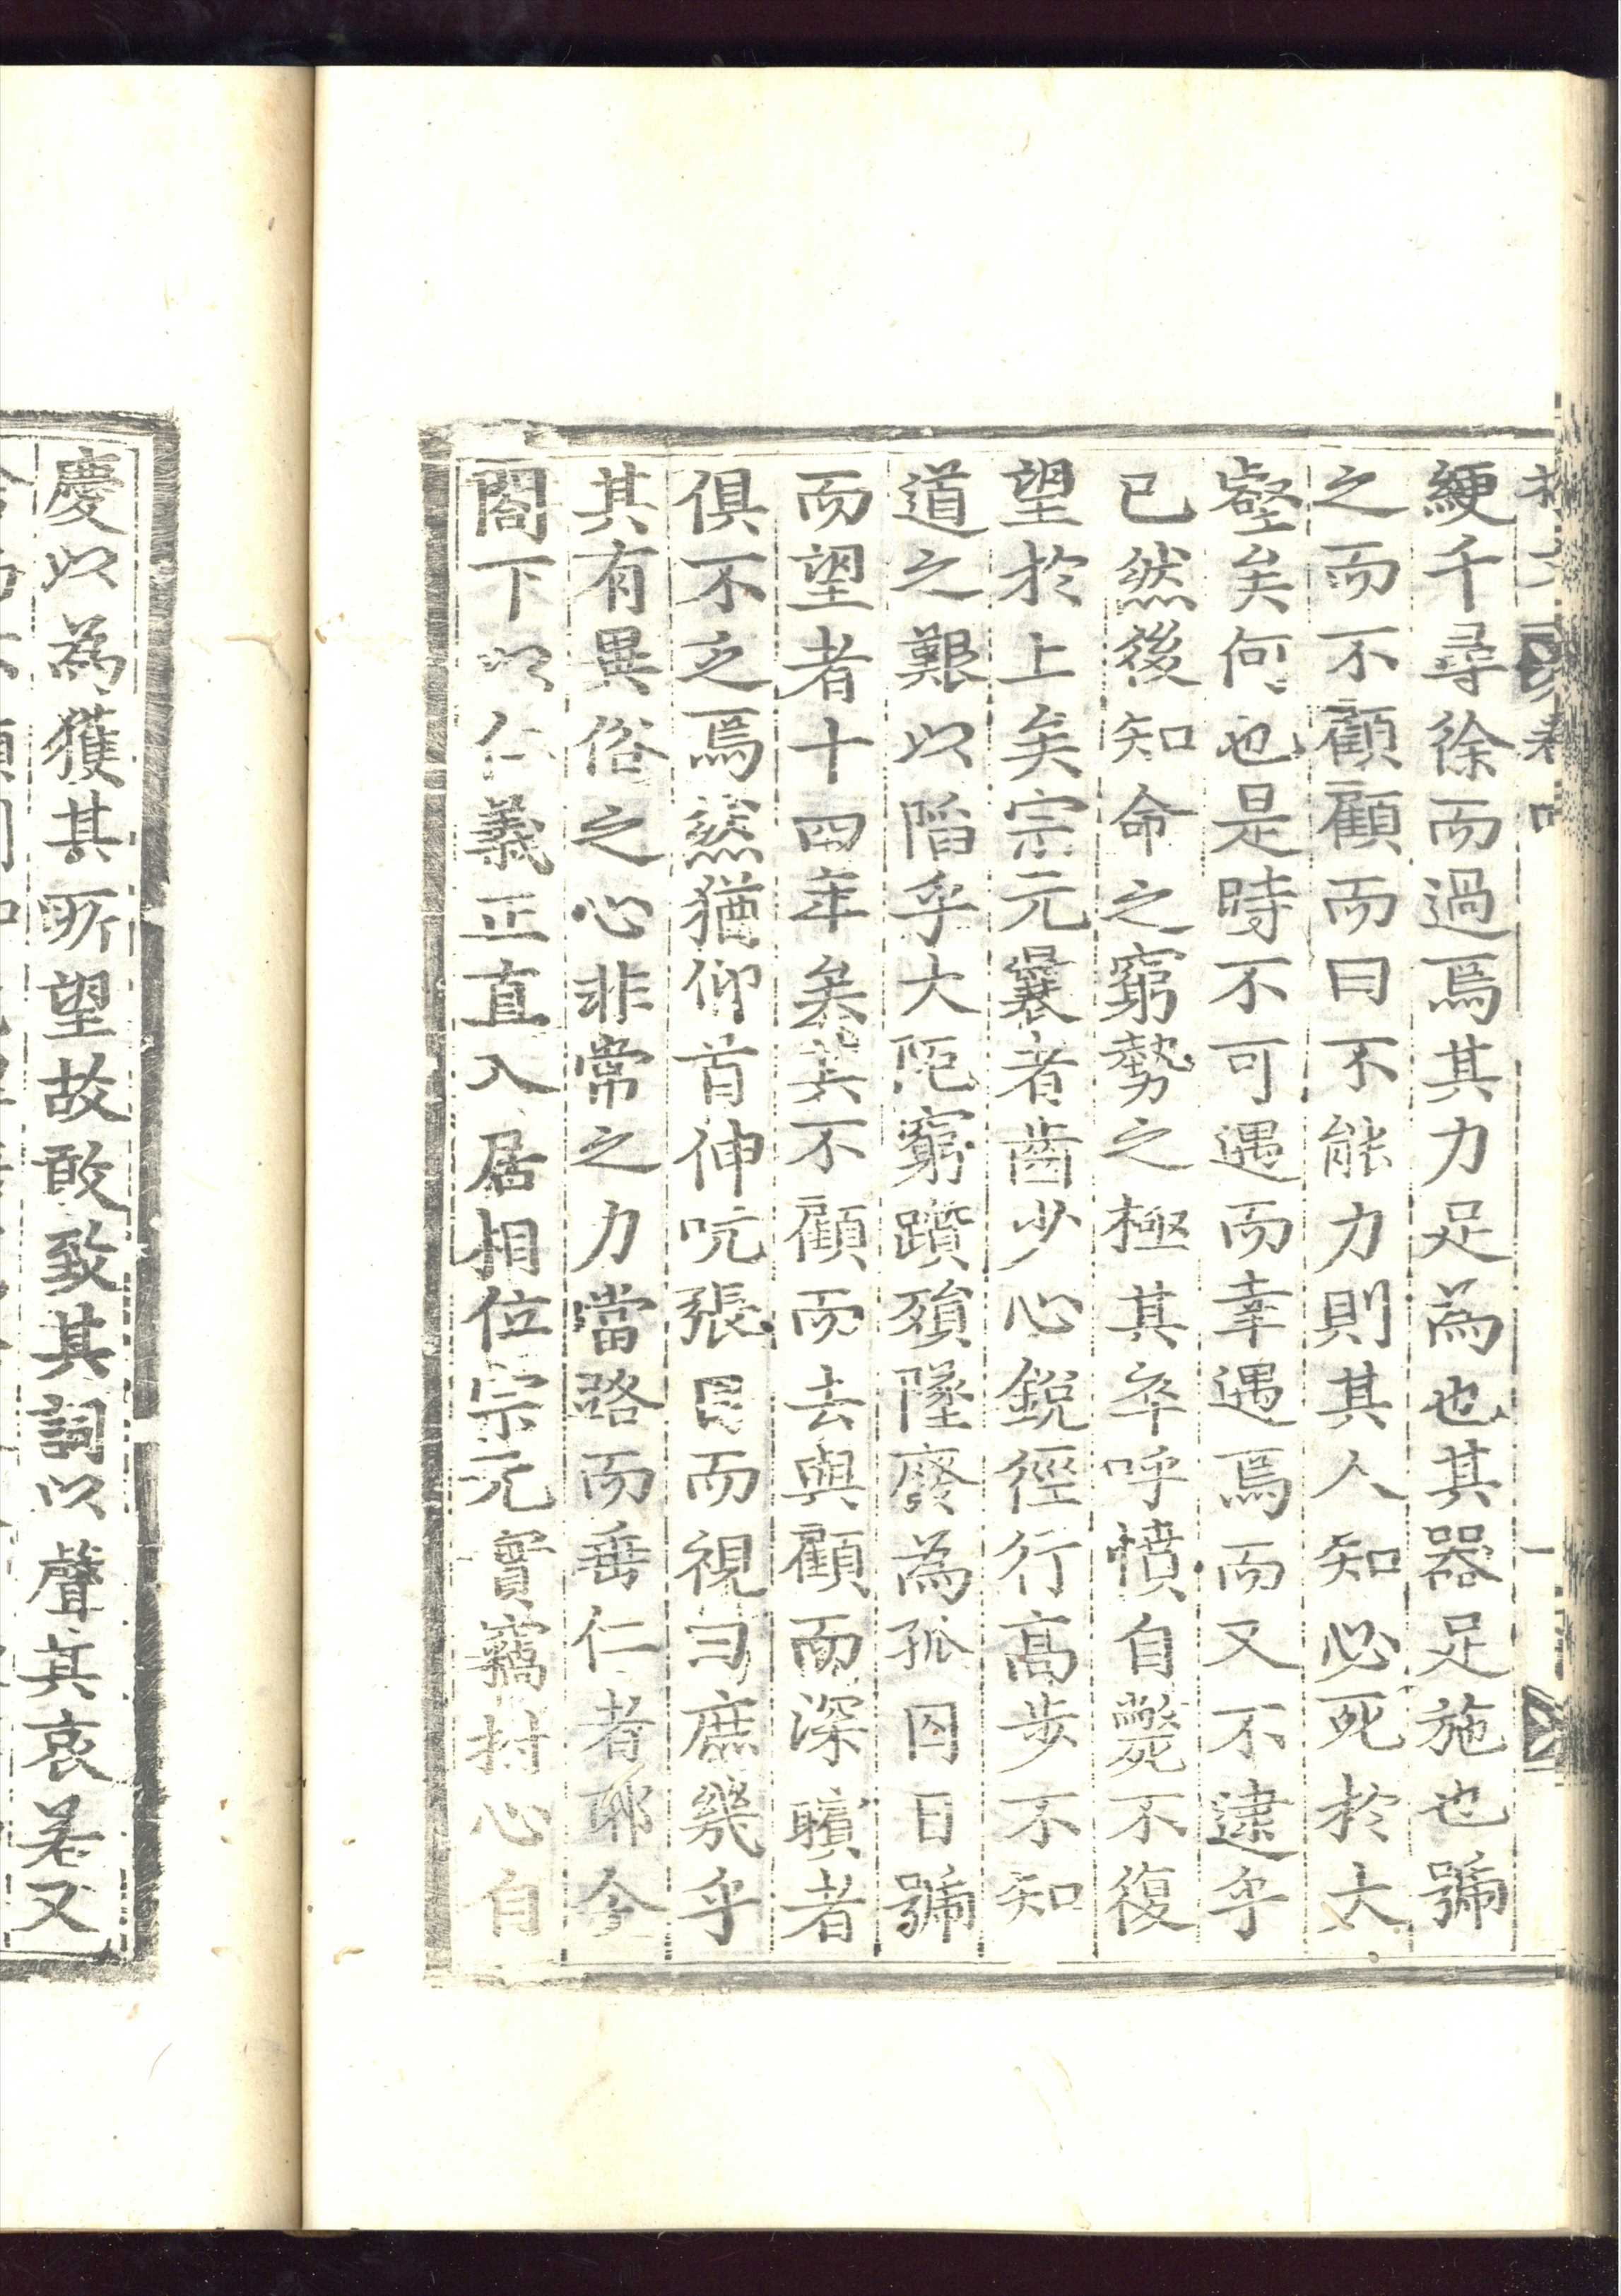 綆千尋徐而過焉其力足為也其器足施也號
之而不顧顧而曰不能力則其人知必死於大
壑矣何也是時不可遇而幸遇焉而又不逮乎
已然後知命之窮勢之極其卒呼憤自斃不復
望於上矣宗元曩者齒少心銳徑行高步不知
道之艱以陷乎大阨窮躓殞墜廢為孤囚日號
而望者十四年矣其不顧而去與顧而深矉者
俱不乏焉然猶仰首伸吭張目而視曰庶幾乎
其有異俗之心非常之力當路而垂仁者耶今
閤下以仁義正直入居相位宗元實竊拊心自
慶以為獲其所望故敢致其詞以聲其哀若又